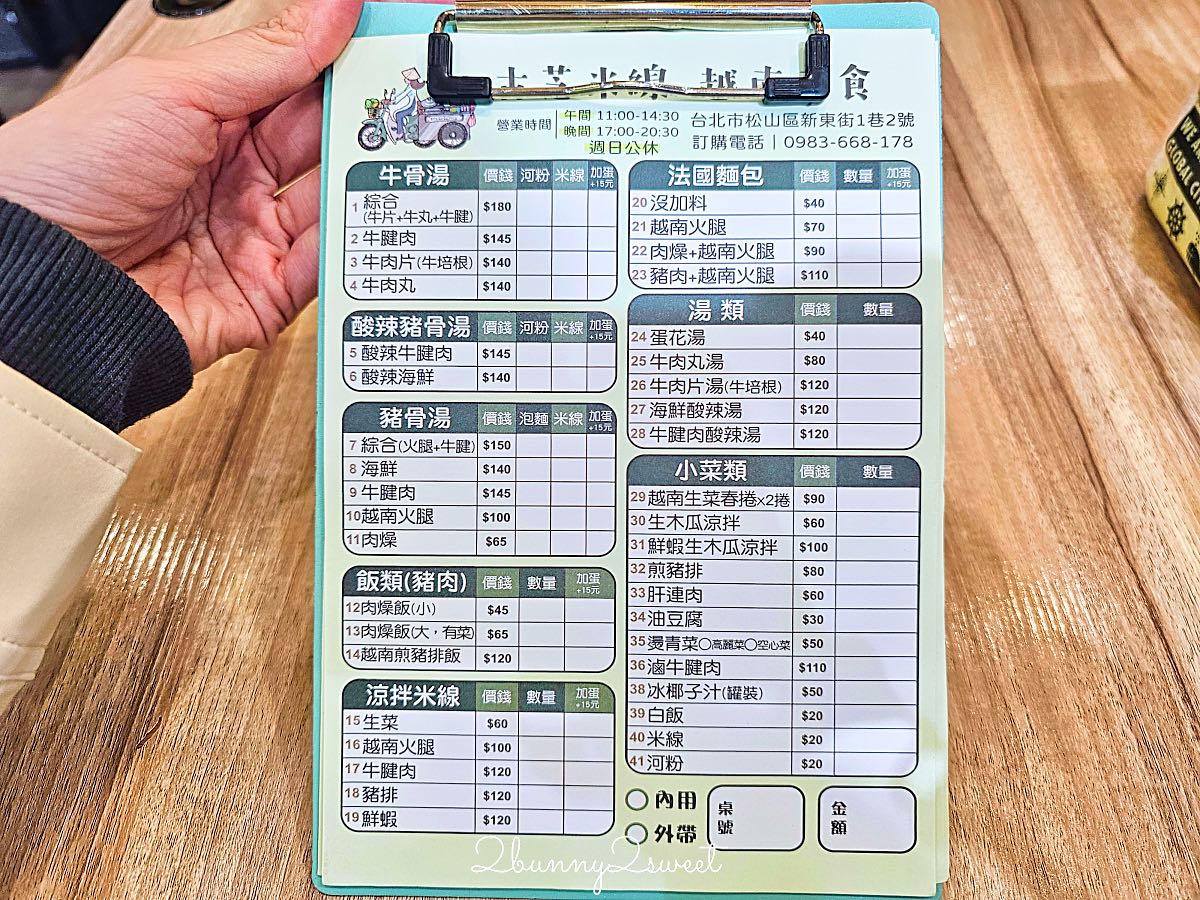 米線 越南 食
營業時間
午間 11:00-14:30
晚間 17:00-20:30
週日公休
台北市松山區新東街1巷2號
訂購電話｜0983-668-178
牛骨湯 價錢 河粉 米線 加蛋 +15元
1 綜合 (牛片+牛丸+牛腱) $180
2 牛腱肉 $145
3 牛肉片(牛培根) $140
4 牛肉丸 $140
酸辣豬骨湯 價錢 河粉 米線 加蛋 +15元
5 酸辣牛腱肉 $145
6 酸辣海鮮 $140
豬骨湯 價錢 泡麵 米線 加蛋 +15元
7 綜合(火腿+牛腱) $150
8 海鮮 $140
9 牛腱肉 $145
10 越南火腿 $100
11 肉燥 $65
飯類(豬肉) 價錢 數量 加蛋 +15元
12 肉燥飯(小) $45
13 肉燥飯(大，有菜) $65
14 越南煎豬排飯 $120
涼拌米線 價錢 數量 加蛋 +15元
15 生菜 $60
16 越南火腿 $100
17 牛腱肉 $120
18 豬排 $120
19 鮮蝦 $120
法國麵包 價錢 數量 加蛋 +15元
20 沒加料 $40
21 越南火腿 $70
22 肉燥+越南火腿 $90
23 豬肉+越南火腿 $110
湯類 價錢 數量
24 蛋花湯 $40
25 牛肉丸湯 $80
26 牛肉片湯(牛培根) $120
27 海鮮酸辣湯 $120
28 牛腱肉酸辣湯 $120
小菜類 價錢 數量
29 越南生菜春捲x2捲 $90
30 生木瓜涼拌 $60
31 鮮蝦生木瓜涼拌 $100
32 煎豬排 $80
33 肝連肉 $60
34 油豆腐 $30
35 燙青菜○高麗菜○空心菜 $50
36 滷牛腱肉 $110
38 冰椰子汁(罐裝) $50
39 白飯 $20
40 米線 $20
41 河粉 $20
○ 內用
○ 外帶
桌號
金額
2bunny2sweet